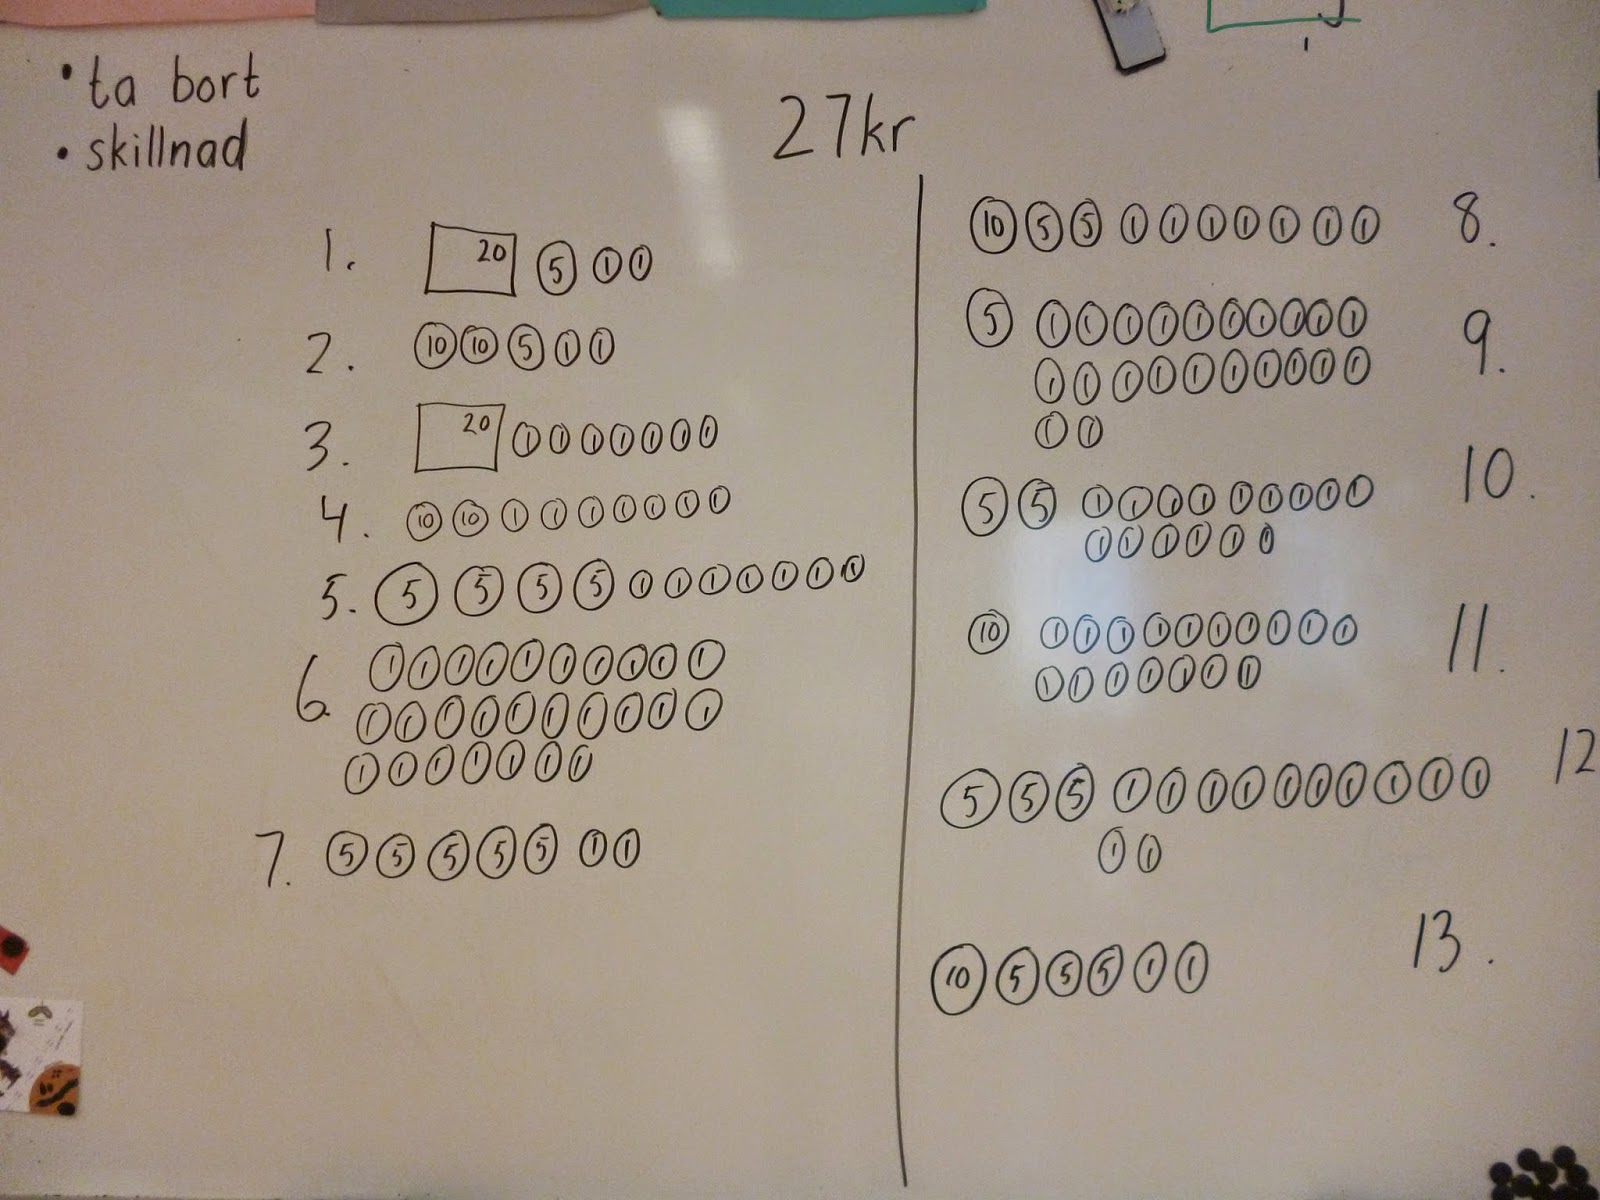 • ta bort
• skillnad
27kr
1. 20 5 1 1
2. 10 10 5 1 1
3. 20 1 1 1 1 1 1 1
4. 10 10 1 1 1 1 1 1 1
5. 5 5 5 5 1 1 1 1 1 1 1
6. 1 1 1 1 1 1 1 1 1 1
1 1 1 1 1 1 1 1 1 1
1 1 1 1 1 1 1
7. 5 5 5 5 5 1 1
10 5 5 1 1 1 1 1 1 1 8.
5 1 1 1 1 1 1 1 1 1 1 9.
1 1 1 1 1 1 1 1 1 1
1 1
5 5 1 1 1 1 1 1 1 1 1 10.
1 1 1 1 1 1
10 1 1 1 1 1 1 1 1 1 1 11.
1 1 1 1 1 1 1
5 5 5 1 1 1 1 1 1 1 1 1 1 12
1 1
10 5 5 5 1 1 13.